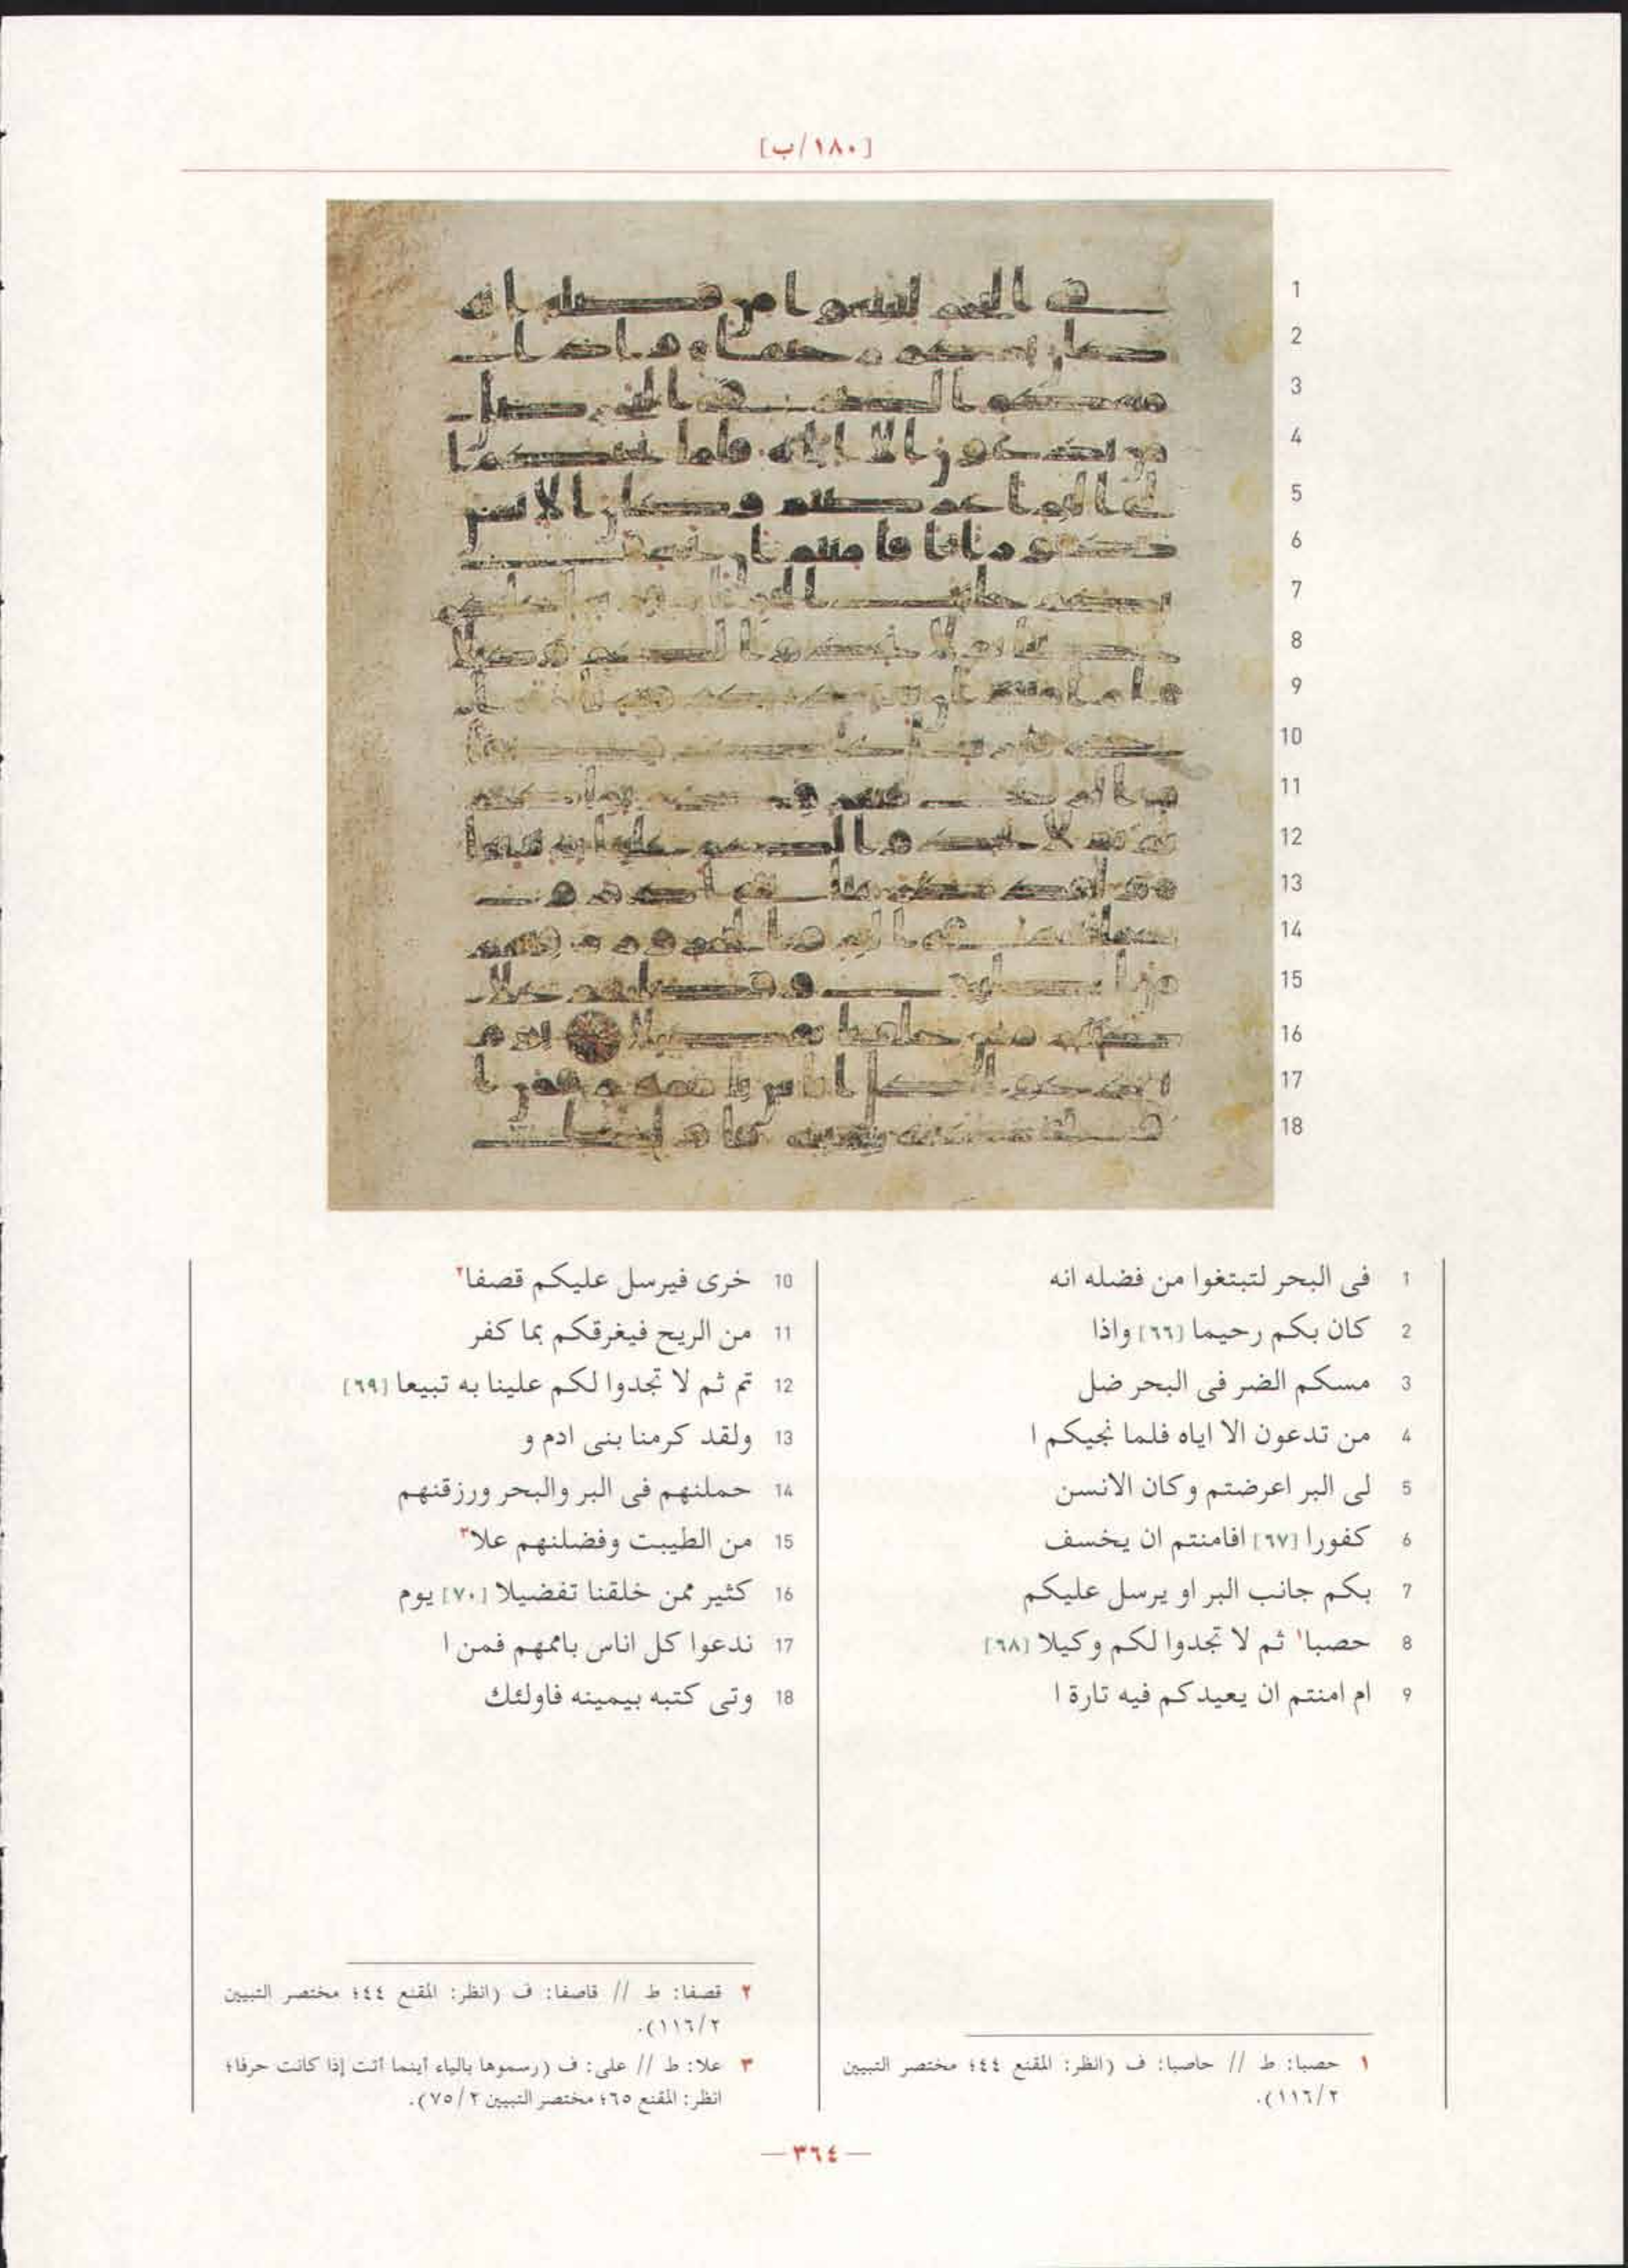 [١٨٠/ب]
1
2
3
4
5
6
7
8
9
10
11
12
13
14
15
16
17
18
1 فى البحر لتبتغوا من فضله انه
2 كان بكم رحيما [٦٦] واذا
3 مسكم الضر فى البحر ضل
4 من تدعون الا اياه فلما نجيكم ا
5 لى البر اعرضتم وكان الانسن
6 كفورا [٦٧] افامنتم ان يخسف
7 بكم جانب البر او يرسل عليكم
8 حصبا١ ثم لا تجدوا لكم وكيلا [٦٨]
9 ام امنتم ان يعيدكم فيه تارة ا
10 خرى فيرسل عليكم قصفا٢
11 من الريح فيغرقكم بما كفر
12 تم ثم لا تجدوا لكم علينا به تبيعا [٦٩]
13 ولقد كرمنا بنى ادم و
14 حملنهم فى البر والبحر ورزقنهم
15 من الطيبت وفضلنهم علا٣
16 كثير ممن خلقنا تفضيلا [٧٠] يوم
17 ندعوا كل اناس باممهم فمن ا
18 وتى كتبه بيمينه فاولئك
١ حصبا: ط // حاصبا: ف (انظر: المقنع ٤٤؛ مختصر التبيين
١١٦/٢).
٢ قصفا: ط // قاصفا: ف (انظر: المقنع ٤٤؛ مختصر التبيين
١١٦/٢).
٣ علا: ط // على: ف (رسموها بالياء أينما أتت إذا كانت حرفا؛
انظر: المقنع ٦٥؛ مختصر التبيين ٧٥/٢).
— ٣٦٤ —